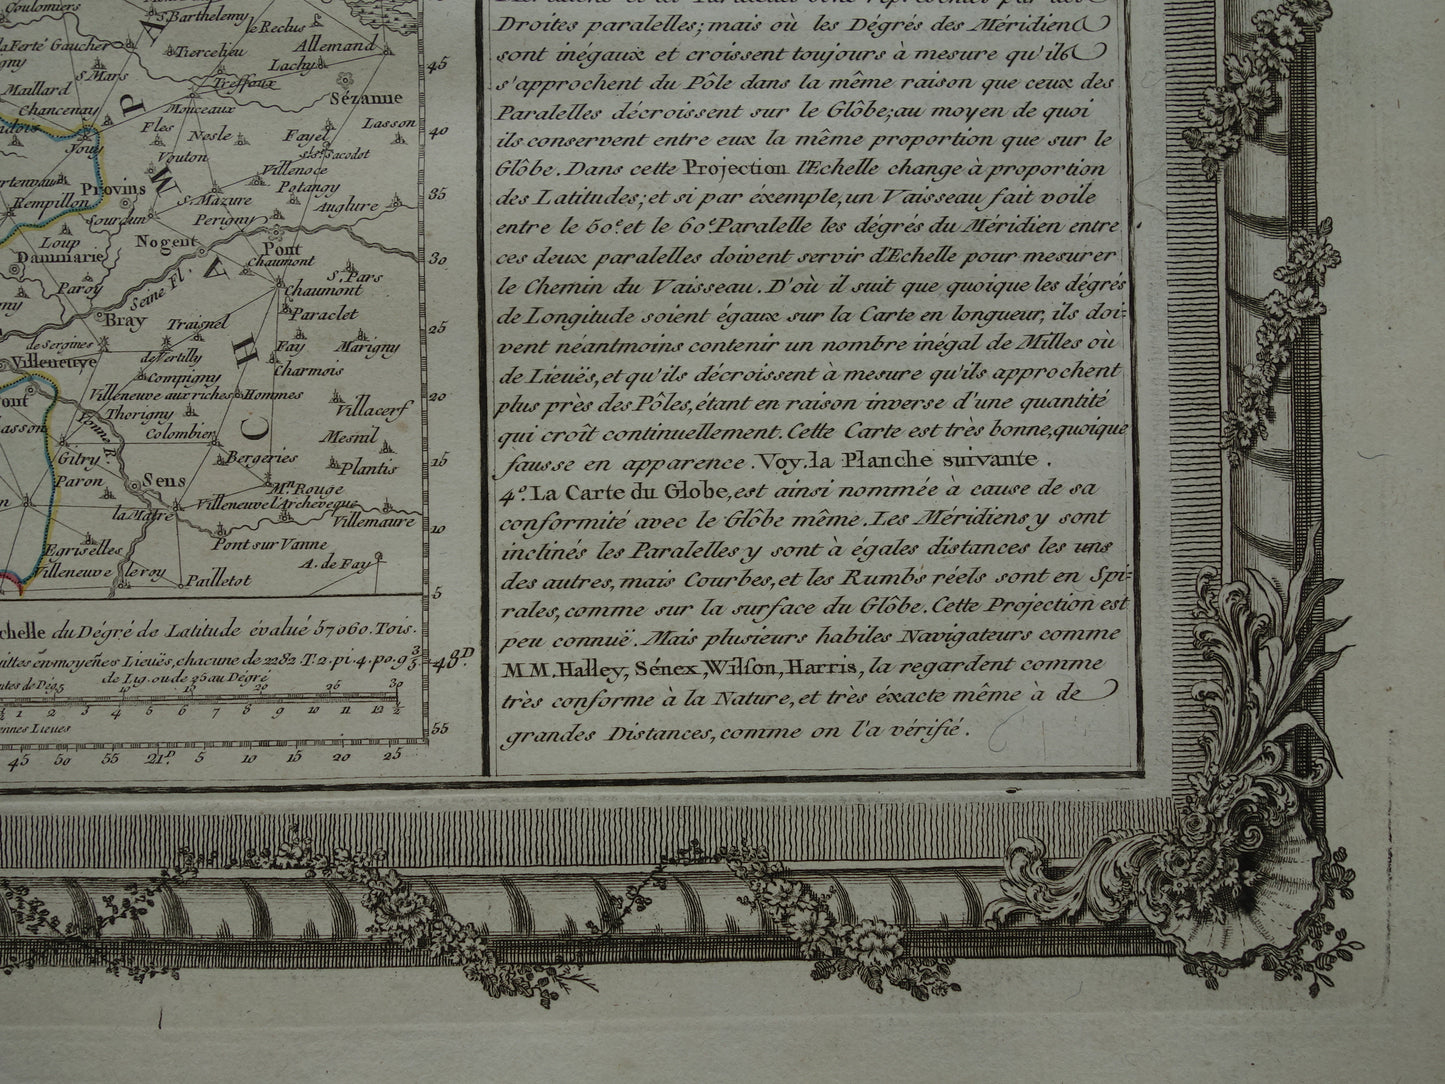 Coulomiers
S. Barthelemy
le Reclus
la Ferté Gaucher
Tiercelieu
Allemand
S. Mars
Lachy
Treffaux
Maillard
Sézanne
Chancenay
Mouceaux
Lasson
Fles
Nesle
Fayel
Jouy
Vouton
Villenoce
Provins
Potangy
Rempillon
S. Mazure
Auglure
Sourdun
Perigny
Loup
Nogent
Pont
Dammarie
Chaumont
S. Pars
Paroy
Seine Fl.
Chaumont
Bray
Traisnel
Paraclet
de Sergines
de Vertilly
Fay
Marigny
Villeneuve
Compigny
Charmois
Villeneuve aux riches Hommes
Thorigny
Villacerf
Colombier
Mesnil
Yonne R.
Gitry
Bergeries
Plantis
Paron
Sens
Mn. Rouge
la Matre
Villeneuve l'Archevêque
Villemaure
Egriselles
Pont sur Vanne
Villeneuve leroy
Pailletot
A. de Fay
P A
M
A
H
C
45
40
35
30
25
20
15
10
5
48D
55
chelle du Dégré de Latitude évalué 57060. Tois.
uittes en moyeñes Lieuës, chacune de 2282 T. 2. pi. 4. po. 9 3/5
de Lig. ou de 25 au Dégré
5 10 15 20 25 30
1 2 3 4 5 6 7 8 9 10 11 12 ½
ennes Lieues
45 50 55 21D. 5 10 15 20 25
Droites paralelles; mais où les Dégrés des Méridiens
sont inégaux et croissent toujours à mesure qu'ils
s'approchent du Pôle dans la même raison que ceux des
Paralelles décroissent sur le Glôbe; au moyen de quoi
ils conservent entre eux la même proportion que sur le
Glôbe. Dans cette Projection l'Echelle change à proportion
des Latitudes; et si par éxemple, un Vaisseau fait voile
entre le 50e. et le 60e. Paralelle les dégrés du Méridien entre
ces deux paralelles doivent servir d'Echelle pour mesurer
le Chemin du Vaisseau. D'où il suit que quoique les dégrés
de Longitude soient égaux sur la Carte en longueur, ils doi=
vent néantmoins contenir un nombre inégal de Milles où
de Lieuës, et qu'ils décroissent à mesure qu'ils approchent
plus près des Pôles, étant en raison inverse d'une quantité
qui croît continuellement. Cette Carte est très bonne, quoique
fausse en apparence. Voy. la Planche suivante.
4o. La Carte du Globe, est ainsi nommée à cause de sa
conformité avec le Glôbe même. Les Méridiens y sont
inclinés les Paralelles y sont à égales distances les uns
des autres, mais Courbes, et les Rumbs réels sont en Spi=
rales, comme sur la surface du Glôbe. Cette Projection est
peu connuë. Mais plusieurs habiles Navigateurs comme
M M. Halley, Sénex, Wilson, Harris, la regardent comme
très conforme à la Nature, et très éxacte même à de
grandes Distances, comme on l'a vérifié.